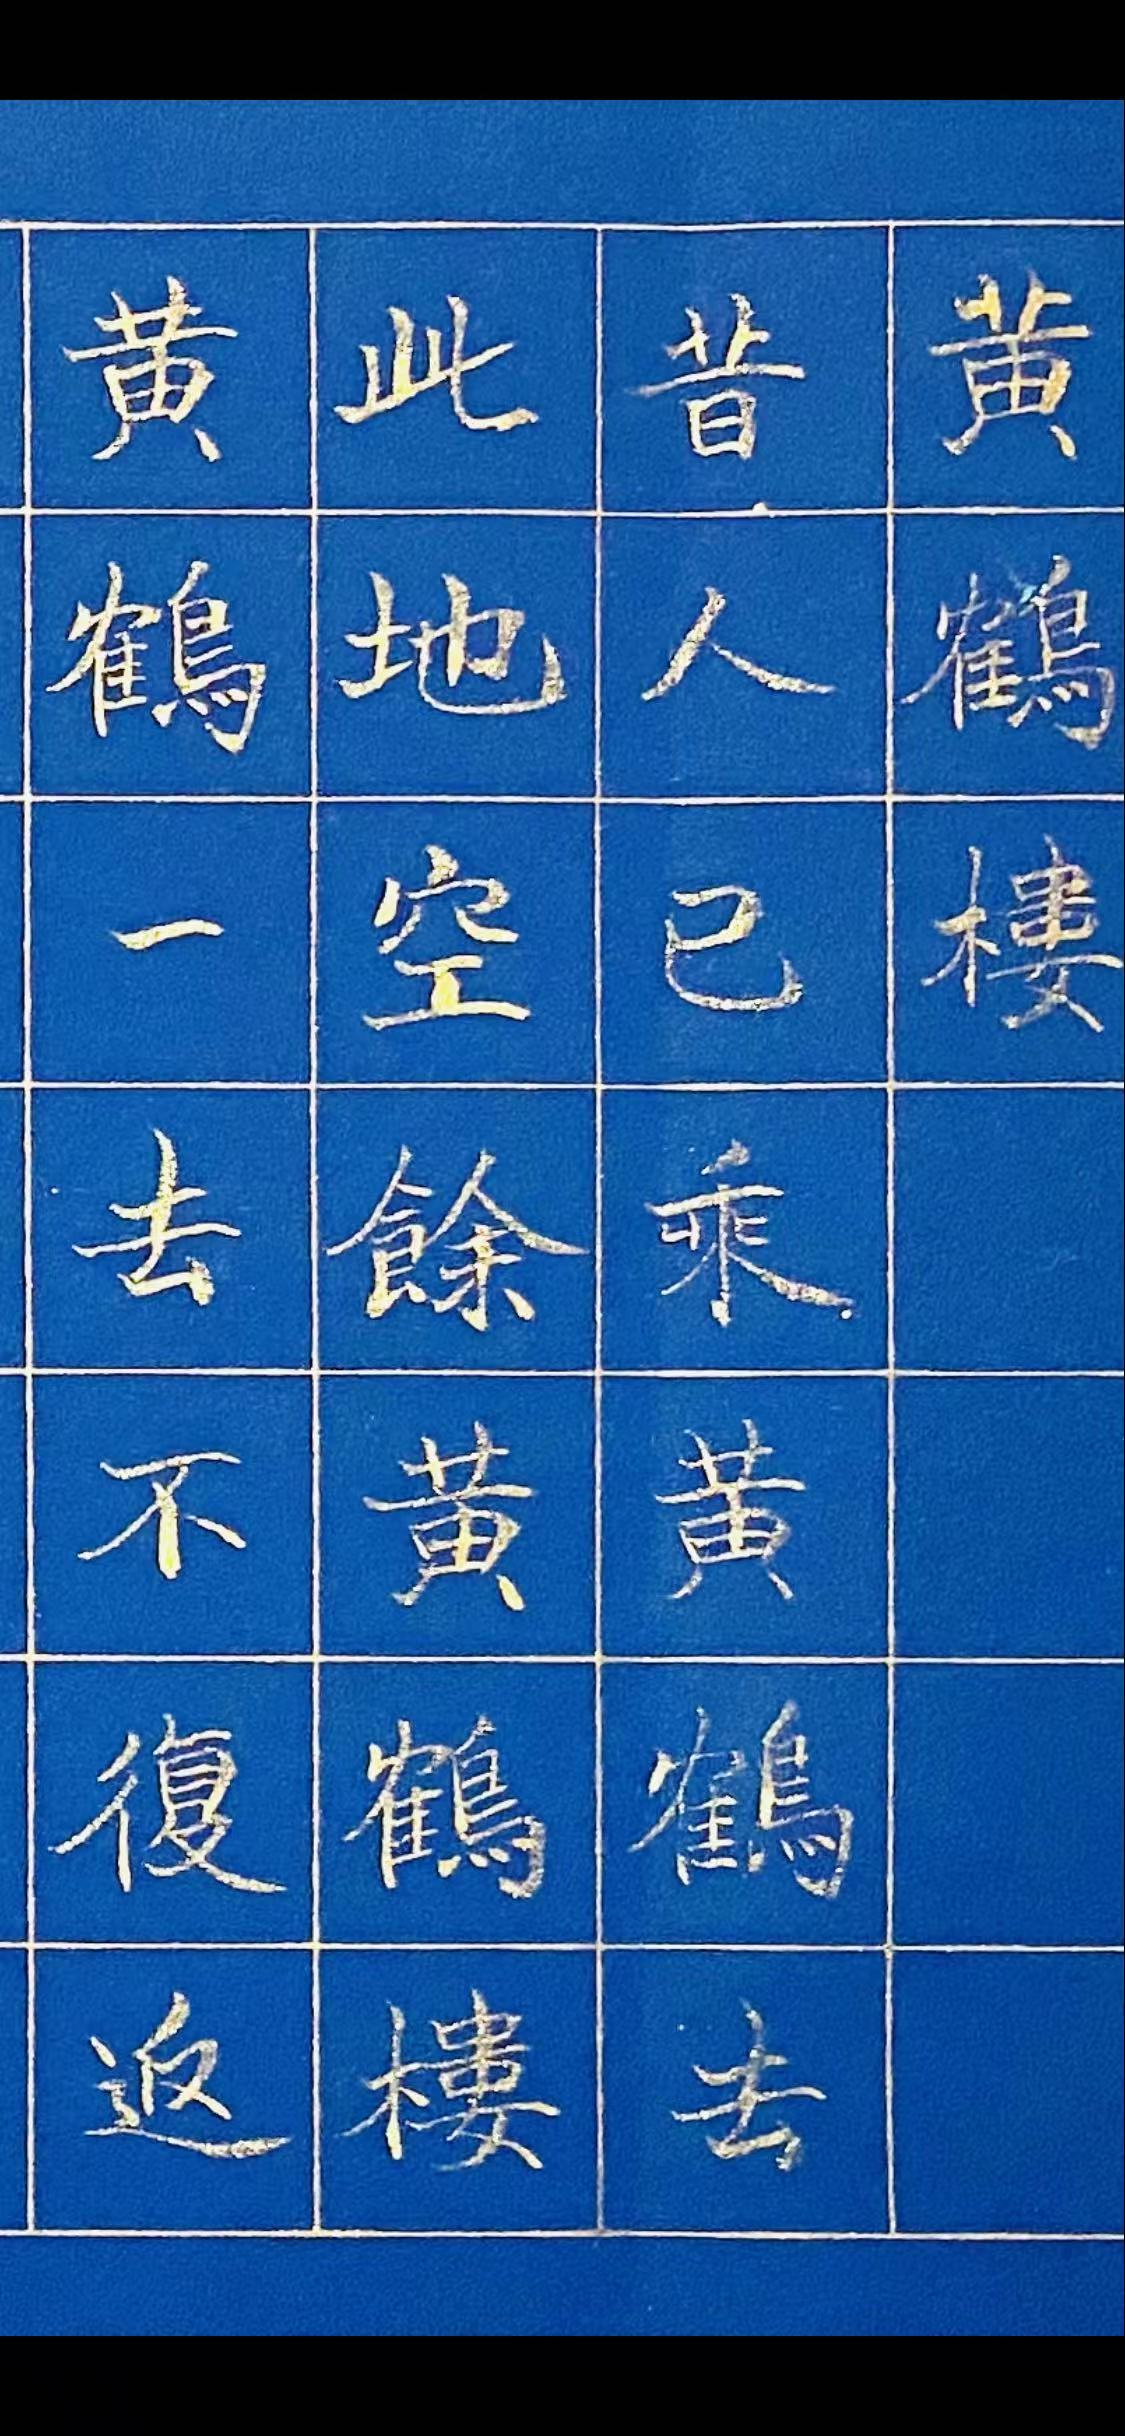 黄鶴樓
昔人已乘黄鶴去
此地空餘黄鶴樓
黄鶴一去不復返